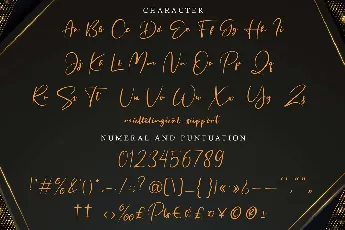 CHARACTER
Aa Bb Cc Dd Ee Ff Gg Hh Ii
Jj Kk Ll Mm Nn Oo Pp Qq
Rr Ss Tt Uu Vv Ww Xx Yy Zz
multilingical support
NUMERAL AND PUNTUATION
0123456789
!"#%&'()*.-./:;?@[\]_{}|«·»¿–—‘’“”„
††‹›‰£
€¢£¤¥©®±